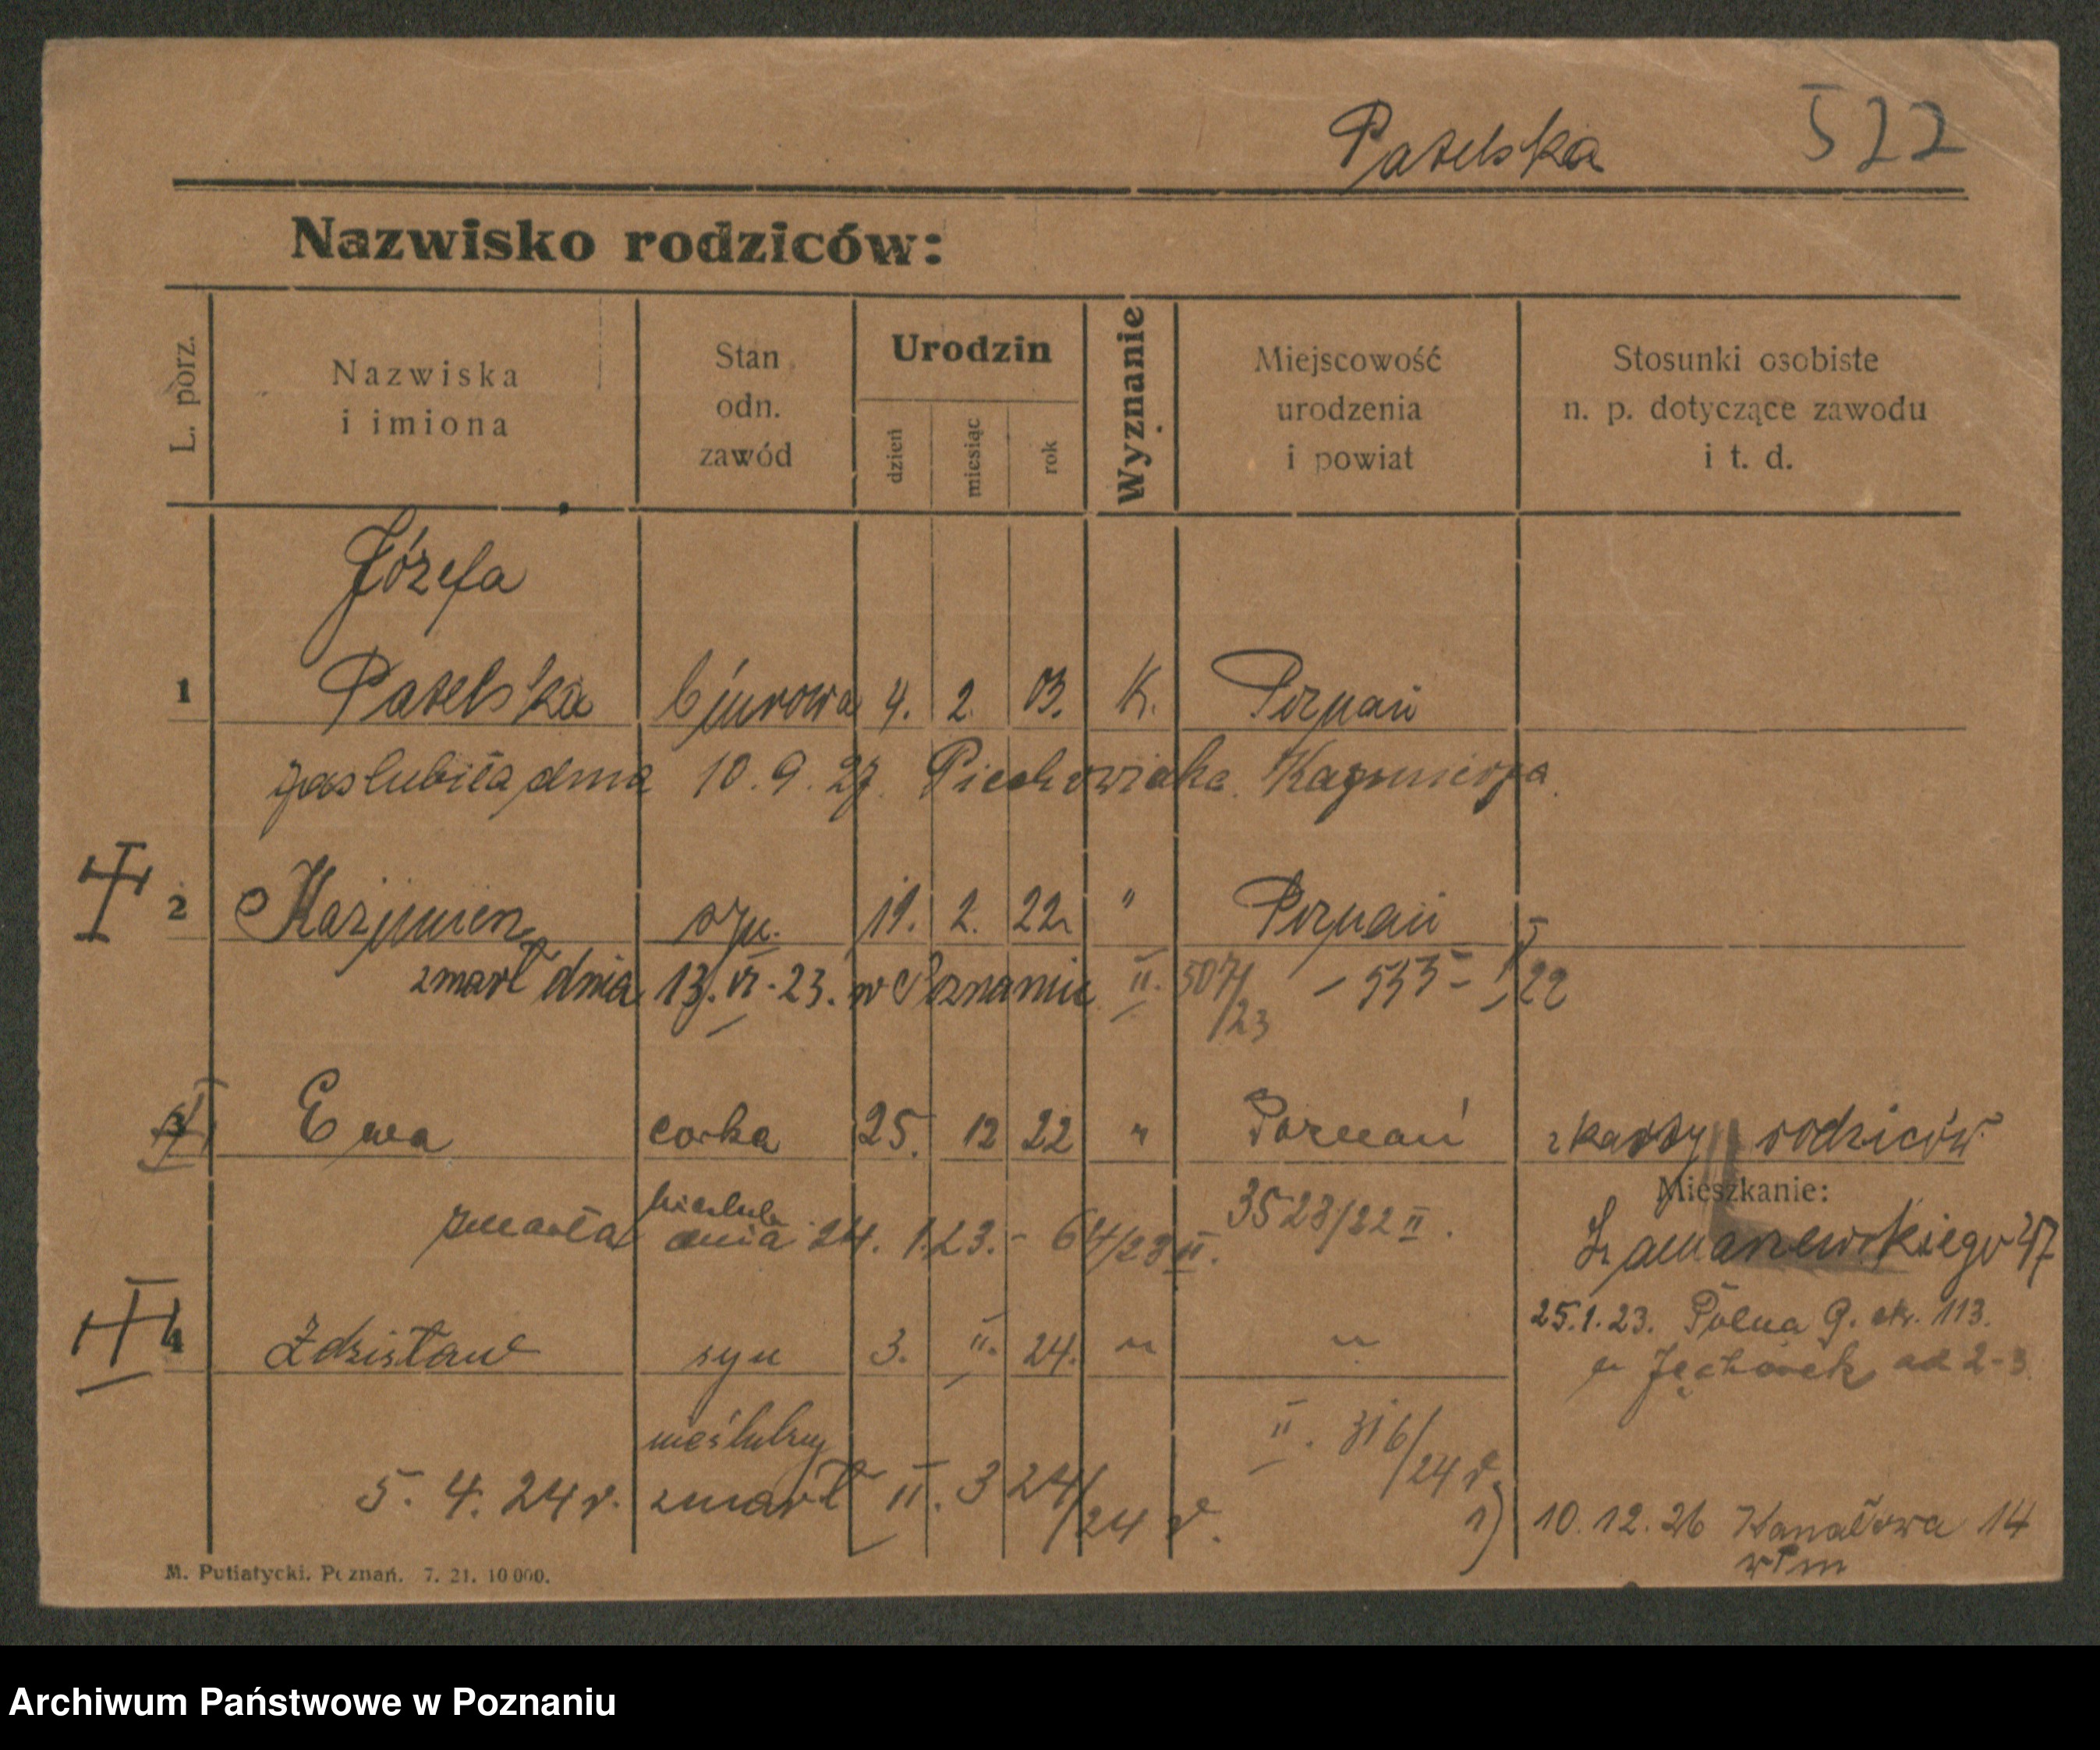 Patelska 522
Nazwisko rodziców:
L. porz.
Nazwiska i imiona
Stan odn. zawód
Urodzin
dzień miesiąc rok
Wyznanie
Miejscowość urodzenia i powiat
Stosunki osobiste n. p. dotyczące zawodu i t. d.
Józefa
1 Patelska biurowa 4. 2. 03. K. Poznań
zaslubiła dnia 10. 9. 27. Piechowiaka Kazimierza.
2 Kazimierz syn. 19. 2. 22 " Poznań
zmarł dnia 13. VI. 23. w Poznaniu II. 507/23 - 535 - 22
3 Ewa corka 25. 12 22 " Poznań z karty rodziców
Mieszkanie:
zmarła dnia 24. 1. 23. - 64/23 II. 3523/22 II.
25. 1. 23. Polna 9.
4 Zdzisław syn 3. II. 24. " "
113.
od 2-3
nieślubny II. 316/24 r.
5. 4. 24 r. zmarł II. 324/24 r.
1) 10. 12. 26 Kanałowa 14
M. Putiatycki, Poznań. 7. 21. 10 000.
Archiwum Państwowe w Poznaniu